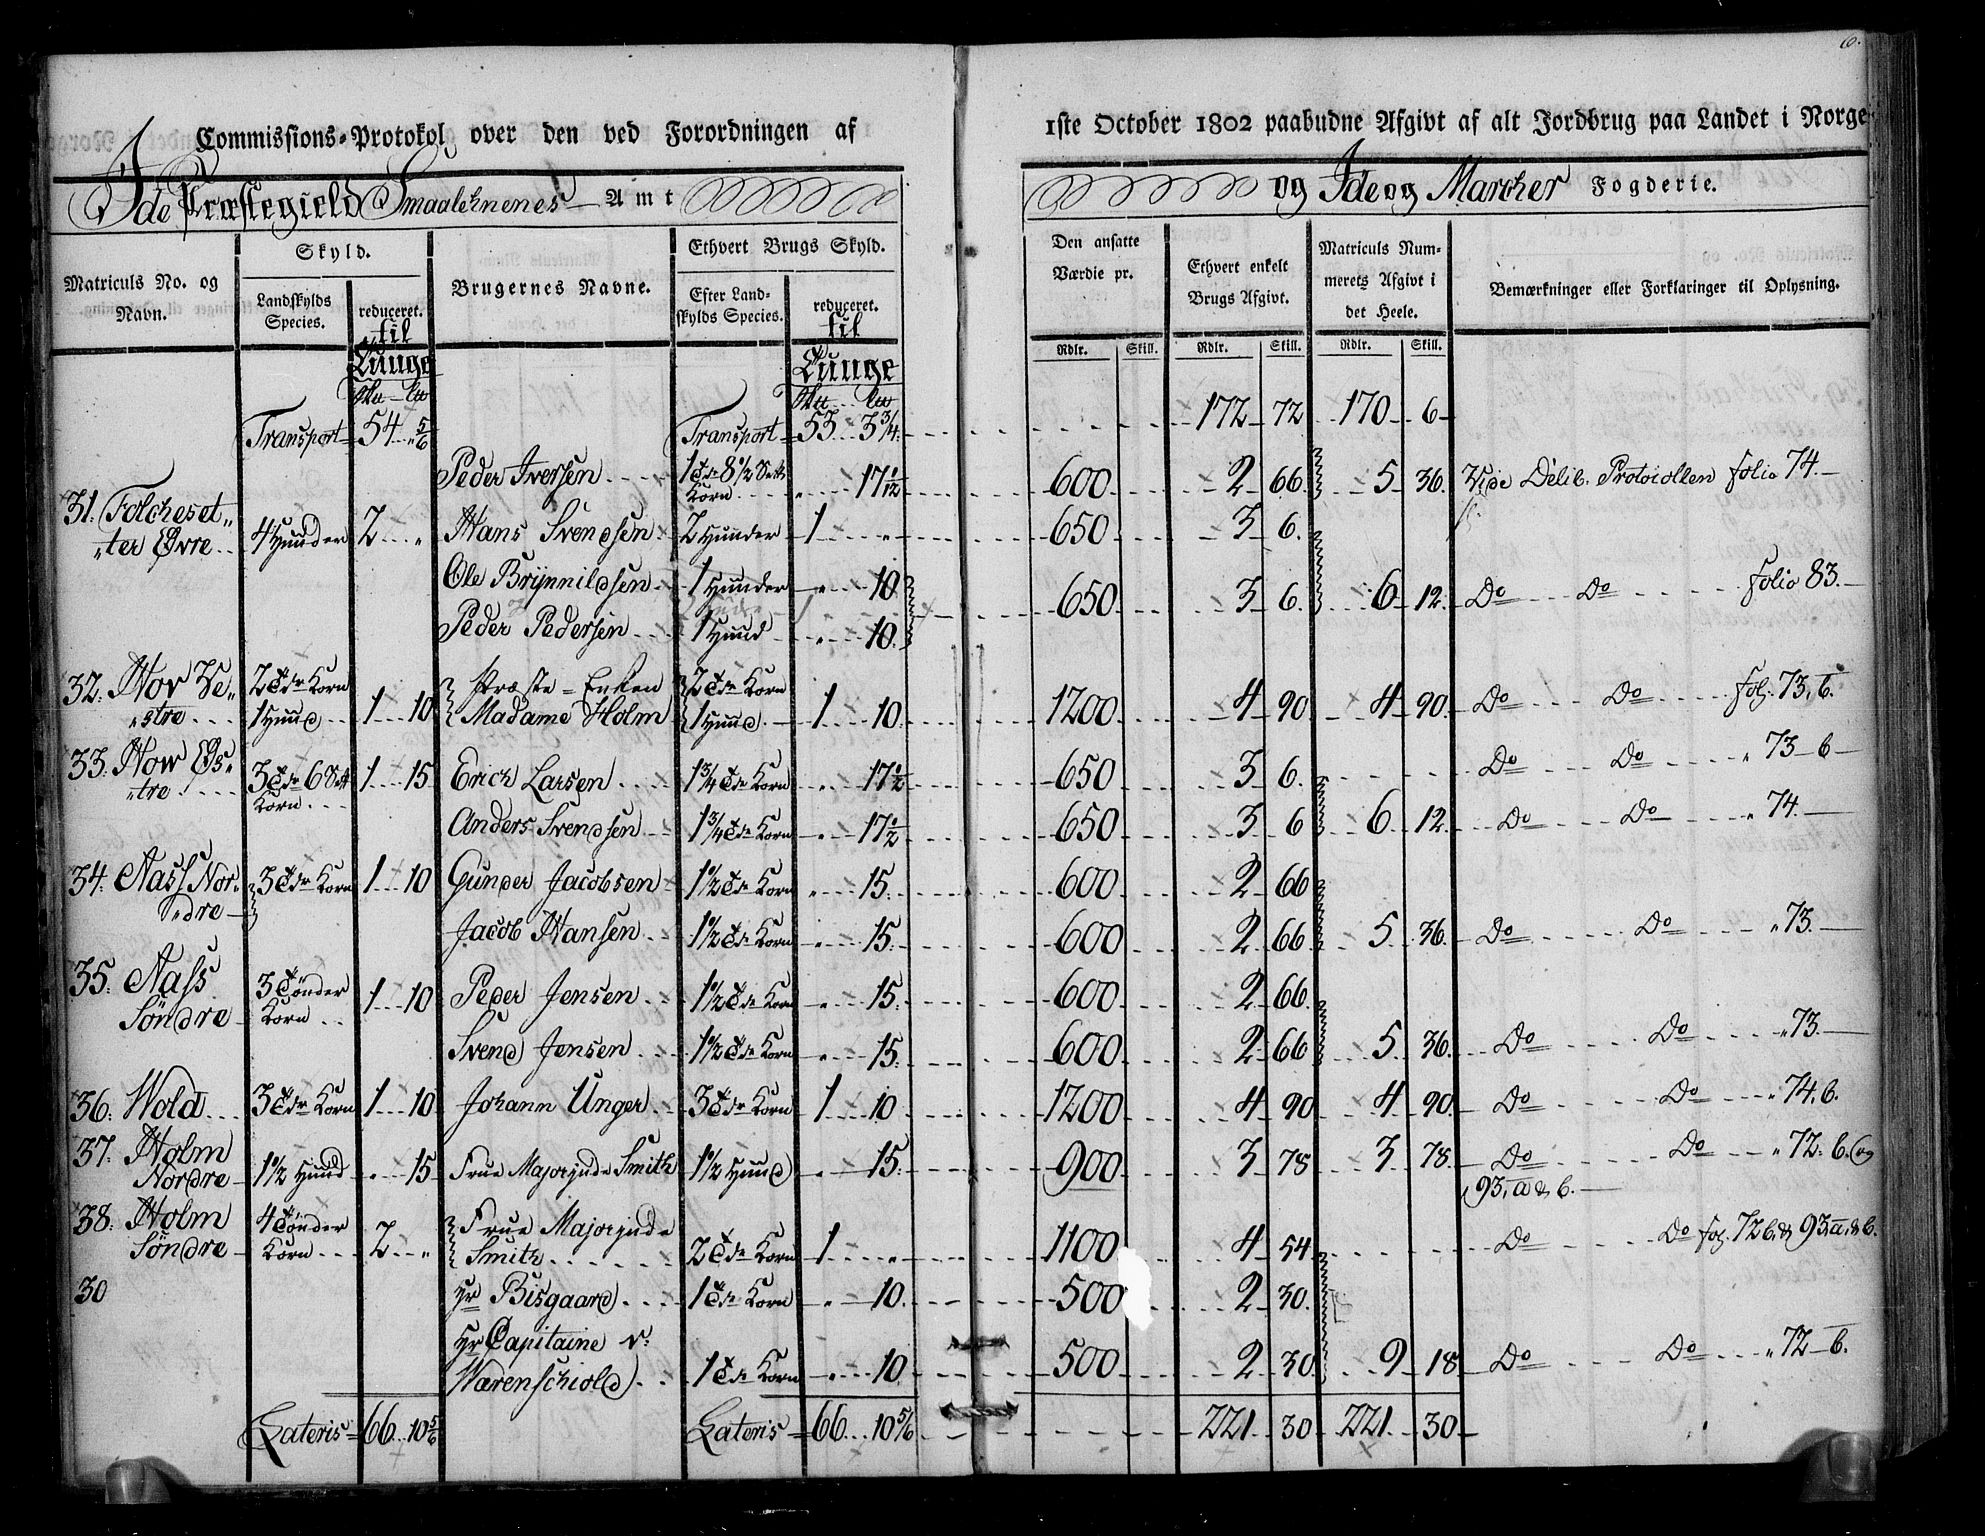 6.
Commissions-Protokol over den ved Forordningen af 1ste October 1802 paabudne Afgivt af alt Jordbrug paa Landet i Norge
Ide Præstegield Smaalehnenes Amt og Ide og Marcker Fogderie.
Matriculs No. og Navn.
Skyld.
Landskylds Species.
reduceret.
til Tünge
Brugernes Navne.
Ethvert Brugs Skyld.
Efter Landskylds Species.
reduceret.
til Tünge
Den ansatte Værdie pr.
Ethvert enkelt Brugs Afgivt.
Matriculs Nummerets Afgivt i det Heele.
Bemærkninger eller Forklaringer til Oplysning.
Rdlr. Skill. Rdlr. Skill. Rdlr. Skill.
Transport 54 5/6 Transport 53 3 3/4 172 72 170 6
Peder Iversen 1 Tde 8 1/2 Sett Korn 17 1/12 600 2 66 5 36 Vide Delib. Protocollen folio 74.
31. Folcheset-
ter Øvre 4 Hunder 2 Hans Svendsen 2 Hunder 1 650 3 6.
Ole Brÿnnildsen 1 Hunder 10 650 3 6 6 12 Do Do folio 83.
Peder Pedersen 1 Hund 10
32. Nor Ve-
stre 2 Tdr Korn 1 Hund 1 10 Præste-Enken Madame Holm 2 Tdr Korn 1 Hund 1 10 1200 4 90 4 90 Do Do fol. 73, b.
33. Now Øs-
tre 3 Tdr 6 Sett Korn 1 15 Erich Larsen 1 3/4 Tdr Korn 17 1/2 650 3 6 Do Do 73 b
Anders Svendsen 1 3/4 Tdr Korn 17 1/2 650 3 6 6 12 Do Do 74.
34. Nass Nor-
dre 3 Tdr Korn 1 10 Gunder Jacobsen 1 1/2 Tdr Korn 15 600 2 66
Jacob Hansen 1 1/2 Tdr Korn 15 600 2 66 5 36 Do Do 73.
35. Nass
Söndre 3 Tönder Korn 1 10 Peder Jensen 1 1/2 Tdr Korn 15 600 2 66
Svend Jensen 1 1/2 Tdr Korn 15 600 2 66 5 36 Do Do 73.
36. Wold 3 Tdr Korn 1 10 Johann Unger 3 Tdr Korn 1 10 1200 4 90 4 90 Do Do 74, b.
37. Holm
Nordre 1 1/2 Hund 15 Frue Majorinde Smith 1 1/2 Hund 15 900 3 78 3 78 Do Do 72. b. og
93, a & b.
38. Holm
Söndre 4 Tönder Korn 2 Frue Majorinde
Smith 2 Tdr Korn 1 1100 4 54 Do Do fol. 72 b. & 93, a. & b.
30 Hr Bisgaard 1 Tde Korn 10 500 2 30
Hr Capitaine v:
Wærenschiold 1 Tde Korn 10 500 2 30 9 18 Do Do 72 b.
Lateris 66 10 5/6 Lateris 66 10 5/6 221 30 221 30